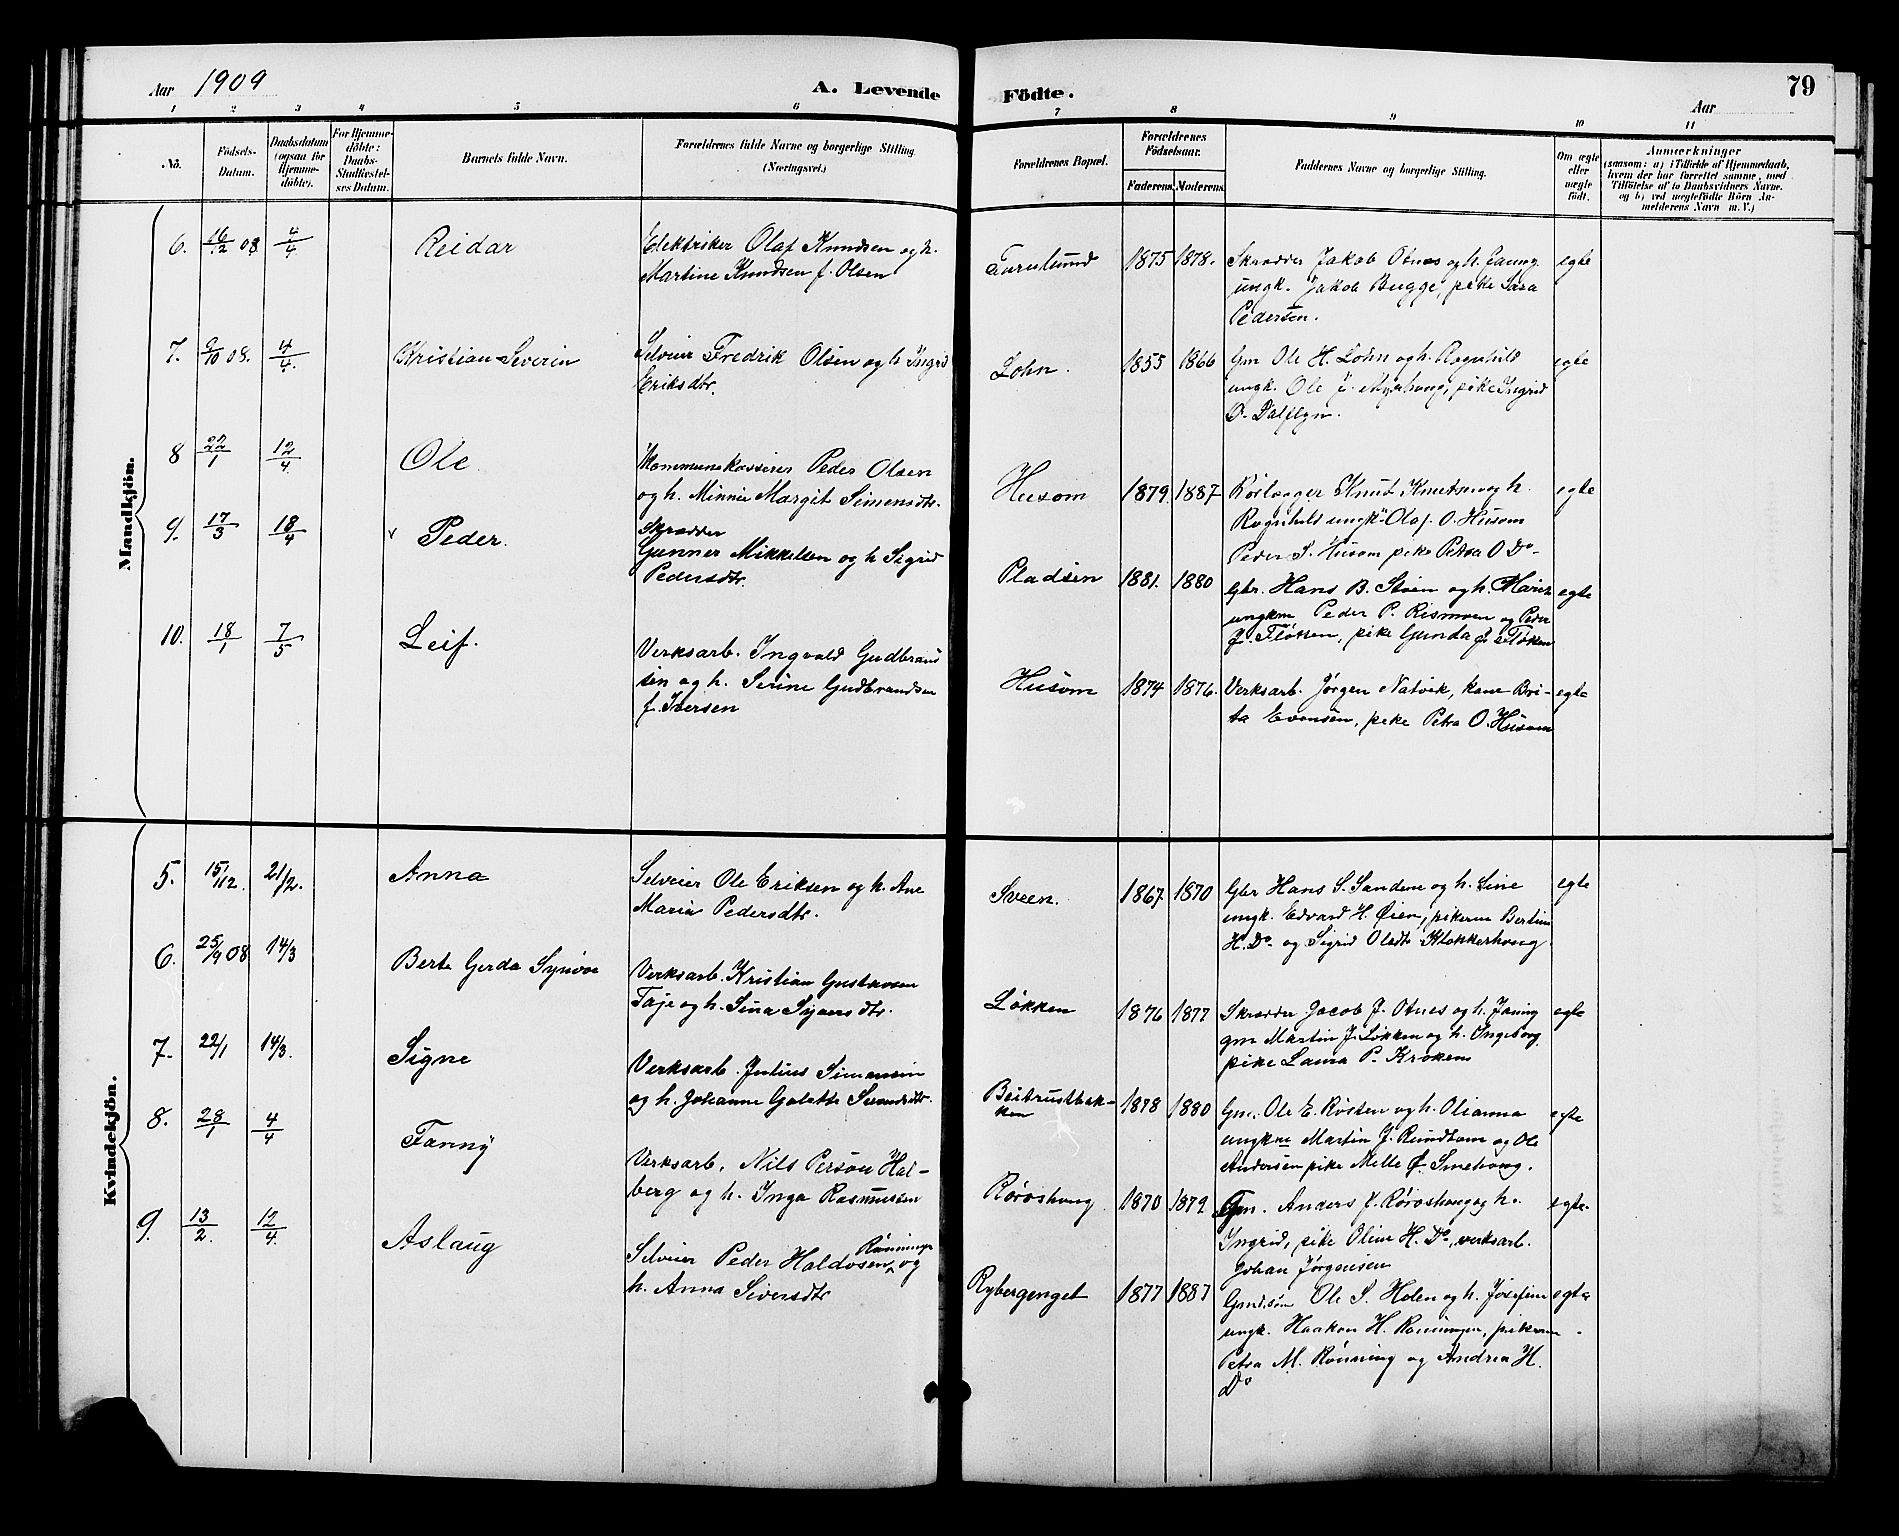 Aar 1909
A. Levende Födte.
Aar
79
1 2 3 4 5 6 7 8 9 10 11
No.
Födsels-Datum.
Daabsdatum (ogsaa for Hjemmedöbte).
For Hjemmedöbte: Daabs-Stadfæstelses Datum.
Barnets fulde Navn.
Forældrenes fulde Navne og borgerlige Stilling. (Næringsvei.)
Forældrenes Bopæl.
Forældrenes Födselsaar.
Faderens. Moderens.
Faddernes Navne og borgerlige Stilling.
Om ægte eller uægte födt.
Anmærkninger
(saasom: a) i Tilfælde af Hjemmedaab,
hvem der har forrettet samme, med
Tilföielse af to Daabsvidners Navne.
og b) ved uægtefödte Börn An-
melderens Navn m. V.)
Mandkjön.
6. 16/12 08. 4/4 Reidar
Elektriker Olaf Knudsen og h.
Martine Knudsen f. Olsen
Furulund 1875 1878.
Skrædder Jakob Otnes og h. Fanny
ungk. Jakob Bugge, pike Sara
Pedersen.
egte
7. 9/10 08. 4/4. Kristian Severin
Selveier Fredrik Olsen og h Ingrid
Eriksdtr.
Lohn. 1855 1866
Gm Ole H. Lohn og h. Ragnhild
ungk. Ole J. Myrhaug, pike Ingrid
O. Dalflyn.
egte
8 22/1 12/4. Ole
Kommunekasserer Peder Olsen
og h. Minnie Margit Simensdtr.
Husom 1879. 1887
Rørlægger Knut Knutsen og h.
Ragnhild ungk. Olaf O. Husom
Peder S. Husom pike Petra O Do-
egte
9. 17/3 18/4 Peder.
Skrædder
Gunner Mikkelsen og h Sigrid
Pedersdtr.
Pladsen 1881. 1880
Gbr. Hans B. Støen og h. Marie
ungkm Peder P. Rismoen og Peder
J. Fløtten, pike Gunda J. Fløtten
egte
10. 18/1 7/5 Leif.
Verksarb. Ingvald Gudbrand
sen og h. Serine Gudbrandsen
f. Iversen
Husom 1874 1876.
Verksarb. Jørgen Natvik, kone Bri-
ta Evensen, pike Petra O. Husom
egte
Kvindekjön.
5. 15/12. 21/2. Anna
Selveier Ole Eriksen og h. Ane
Maria Pedersdtr.
Sveen. 1867 1870
Gbr Hans S. Sandene og h. Sine
ungk. Edvard H. Øien, pikerne Bertine
H. Do. og Sigrid Olsdtr Klokkerhaug
egte
6. 25/9 08 14/3 Berte Gerda Synøve
Verksarb. Kristian Gustavsen
Taje og h. Sina Sjversdtr.
Løkken 1876 1877
Skrædder Jacob J. Otnes og h. Fanny
gm Martin J. Løkken og h. Ingeborg
pike Laura P. Kroken
egte
7. 22/1 14/3. Signe
Verksarb. Julius Simensen
og h. Johanne Galette Svendsdtr.
Beitrustbak-
ken
1878 1880
Gm. Ole E. Røsten og h. Olianna
ungkne Martin J. Rundhom og Ole
Andersen pike Mille Ø. Smehaug.
egte
8. 28/1 4/4 Fanny
Verksarb. Nils Person Hal-
berg og h. Inga Rasmussen
Røroshaug 1870 1879
Gm. Anders J. Røroshaug og h.
Ingrid, pike Oline H. Do, verksarb.
Johan Jørgensen
egte.
9. 13/2. 12/4. Aslaug
Selveier Peder Haldosen Rønningen og
h. Anna Siversdtr
Rybergenget 1877 1887
Gmdsøn Ole S. Holen og h. Josefine
ungk. Haakon H. Rønningen, pikerne
Petra M. Rønning og Andrea H.
Do
egte